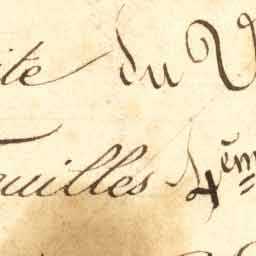 ite du V
euilles 4em